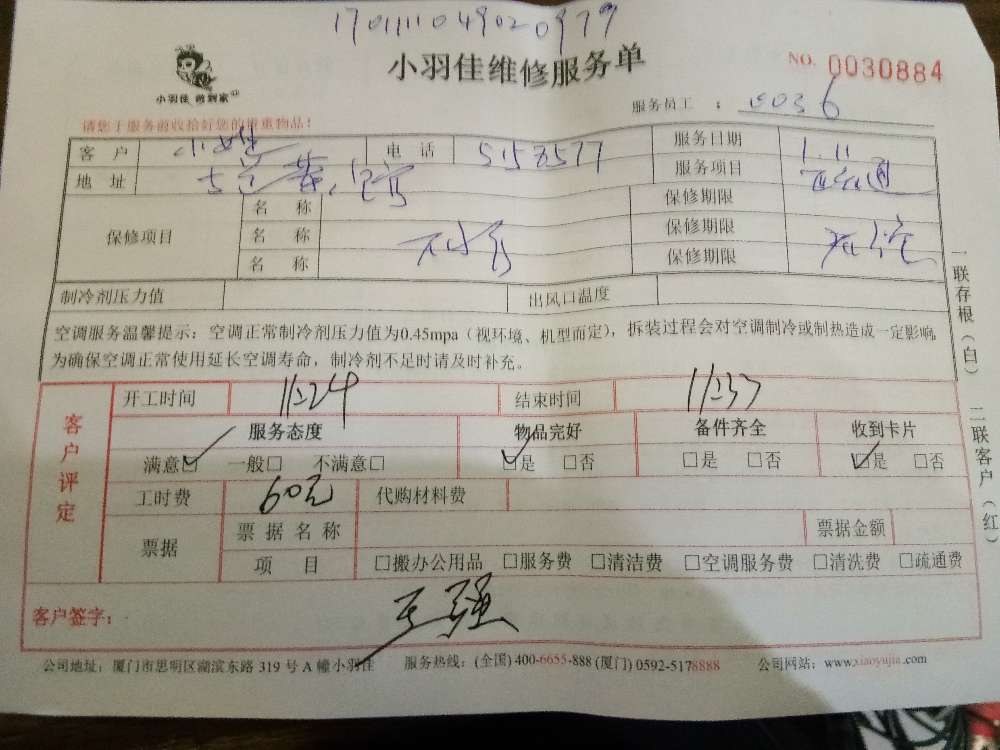 1701111049020979
小羽佳 做到家
小羽佳维修服务单
NO. 0030884
服务员工：
请您于服务前收拾好您的贵重物品！
客 户 电 话 5157577 服务日期 1.11
地 址 服务项目
保修项目 名 称 保修期限
名 称 保修期限
名 称 保修期限
制冷剂压力值 出风口温度
空调服务温馨提示：空调正常制冷剂压力值为0.45mpa（视环境、机型而定），拆装过程会对空调制冷或制热造成一定影响，
为确保空调正常使用延长空调寿命，制冷剂不足时请及时补充。
客户评定
开工时间 11:24 结束时间 11:37
服务态度 物品完好 备件齐全 收到卡片
满意☑ 一般□ 不满意□ ☑是 □否 □是 □否 ☑是 □否
工时费 60元 代购材料费
票据 票据名称 票据金额
项 目 □搬办公用品 □服务费 □清洁费 □空调服务费 □清洗费 □疏通费
客户签字： 王强
公司地址：厦门市思明区湖滨东路 319 号 A 幢小羽佳 服务热线：(全国) 400-6655-888 (厦门) 0592-5178888 公司网站：www.xiaoyujia.com
一联存根（白） 二联客户（红）